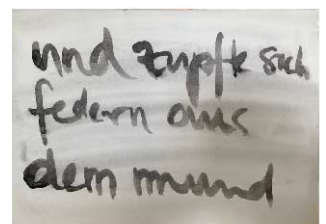 und zupfte sich
federn aus
dem mund